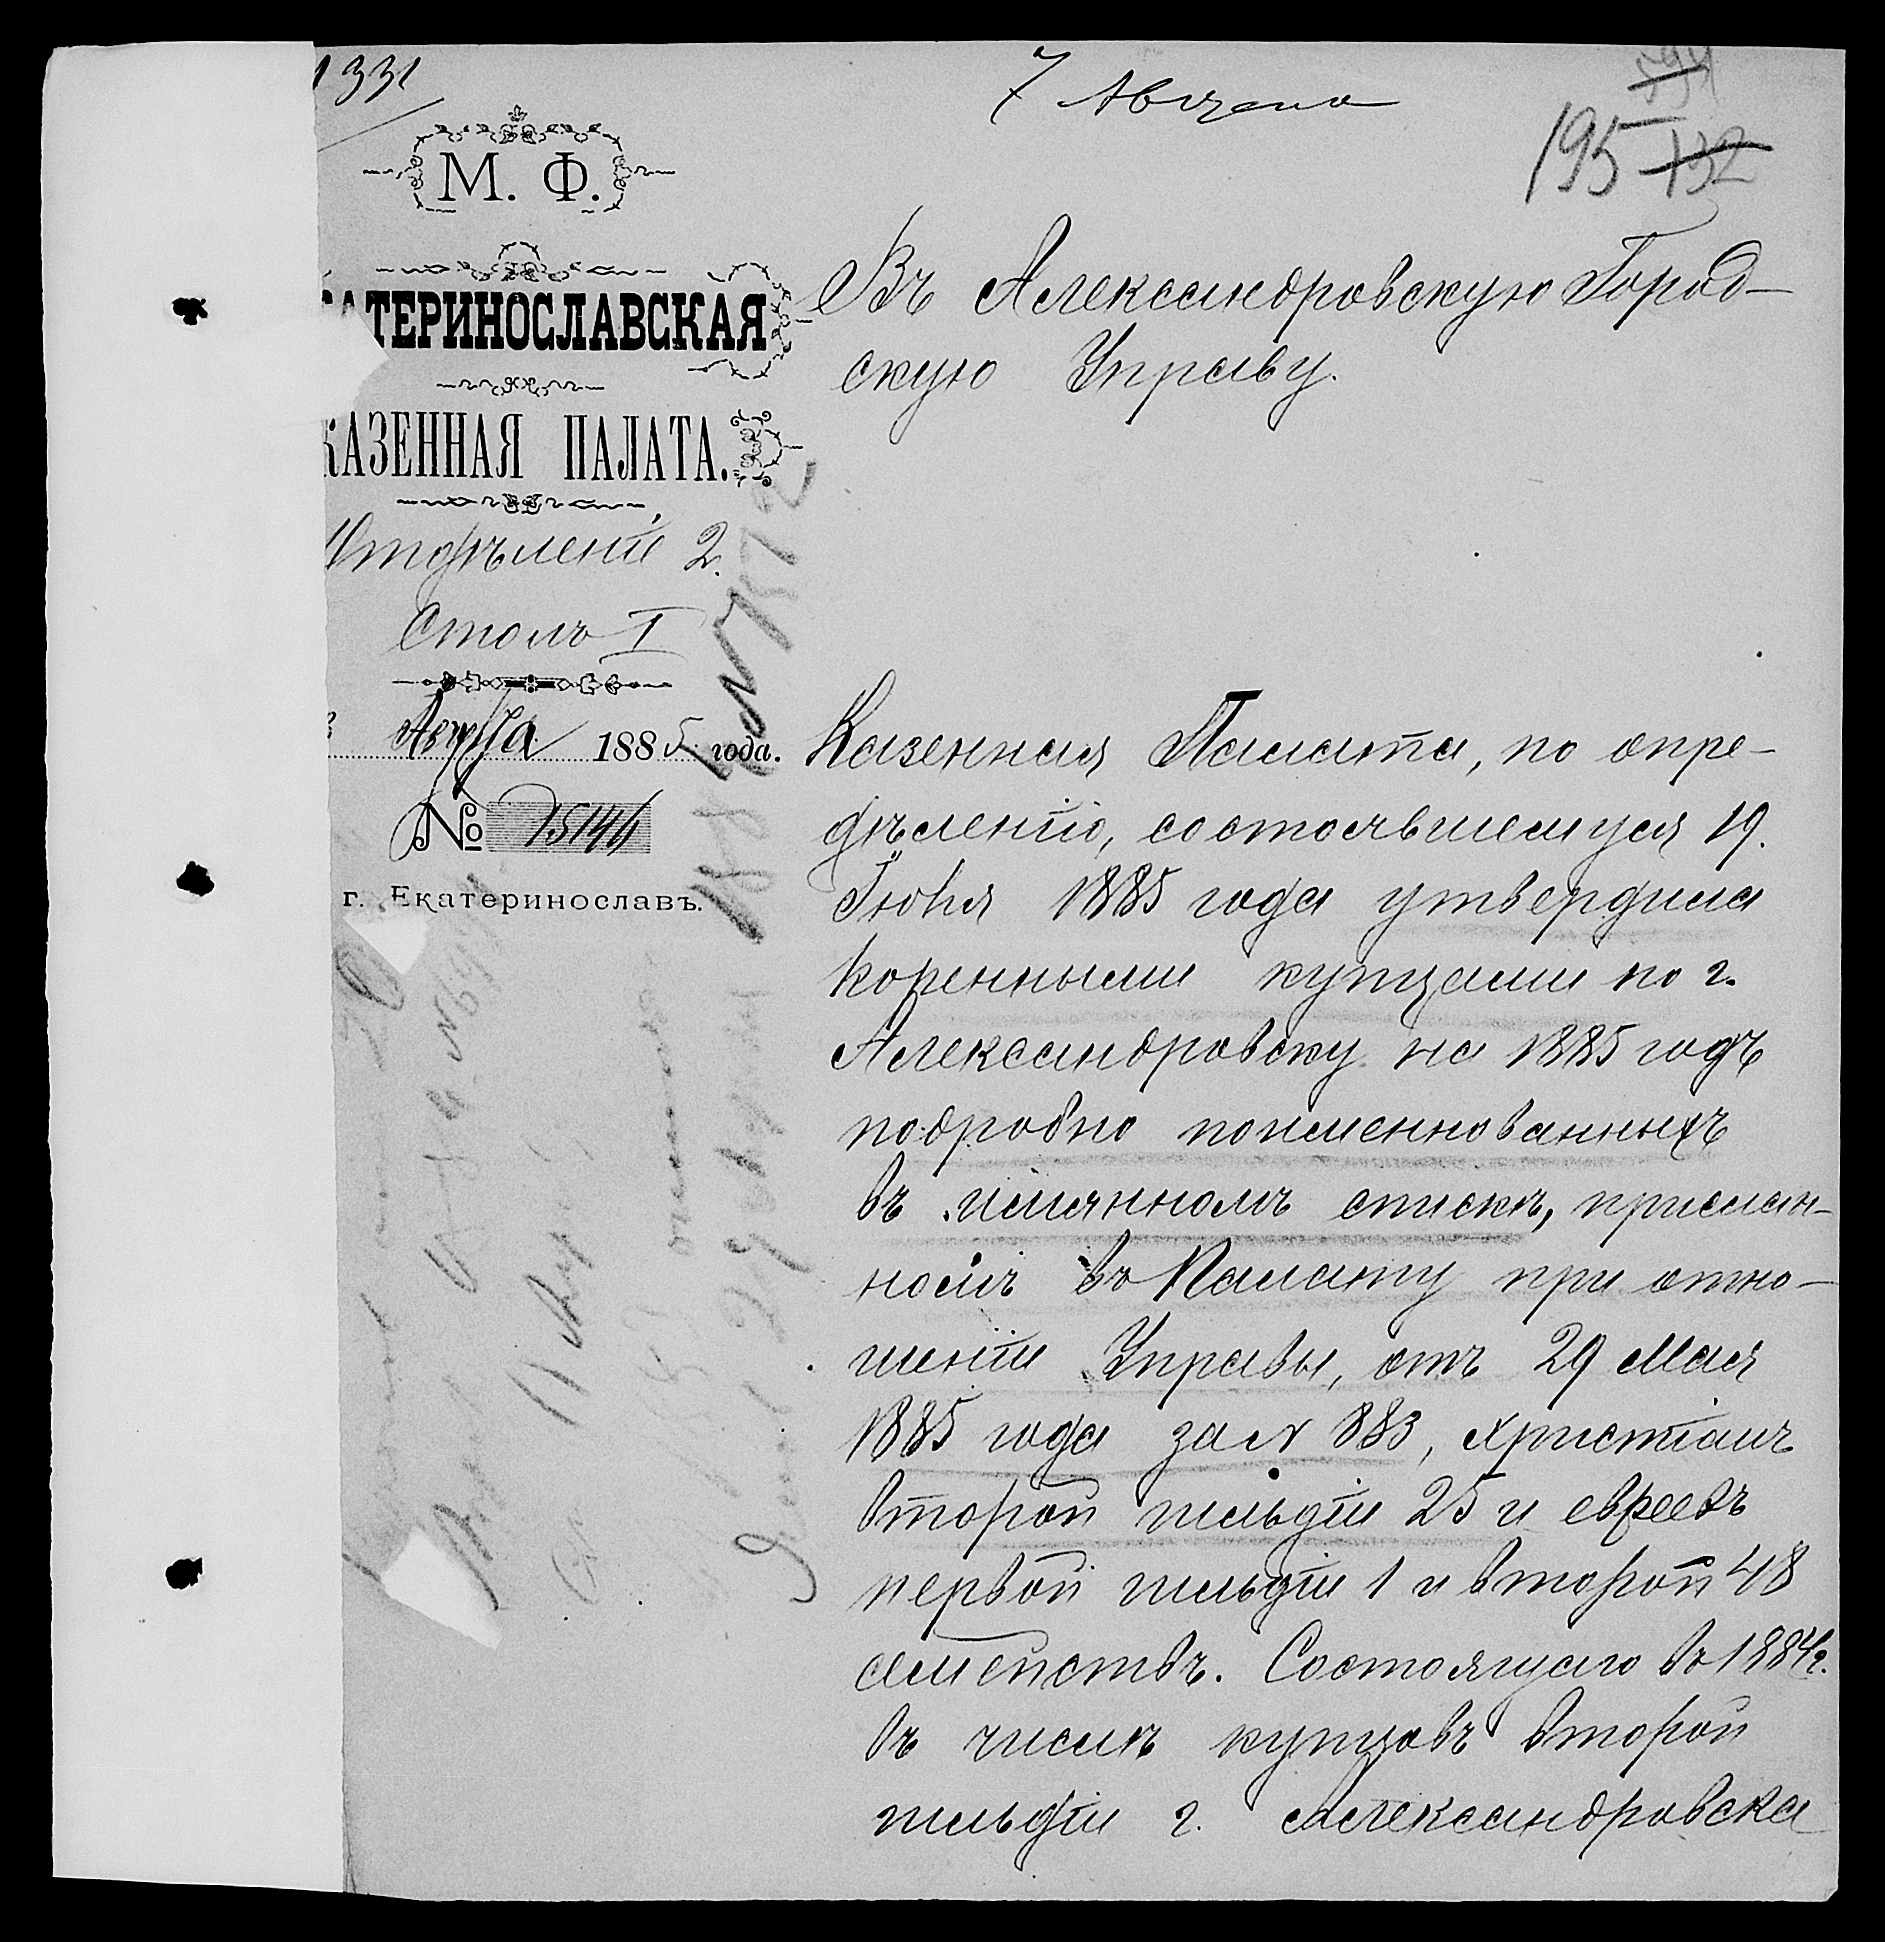 1331
7 Августа
594
195 132
М. Ф.
КАТЕРИНОСЛАВСКАЯ
КАЗЕННАЯ ПАЛАТА.
Отдѣленіе 2.
Столъ I
Августа 1885 года.
№ 15146
г. Екатеринославъ.
Въ Александровскую Город-
скую Управу.
Казенная Палата, по опре-
дѣленію, состоявшемуся 19.
Іюня 1885 года утвердила
коренными купцами по г.
Александровску на 1885 годъ
подробно поименнованныхъ
въ имянномъ спискѣ, прислан-
номъ въ Палату при отно-
шеніи Управы, отъ 29 Мая
1885 года за № 883, христіанъ
второй гильдіи 25 и евреевъ
первой гильдіи 1 и второй 48
семействъ. Состоящаго въ 1884 г.
въ числѣ купцовъ второй
гильдіи г. Александровска